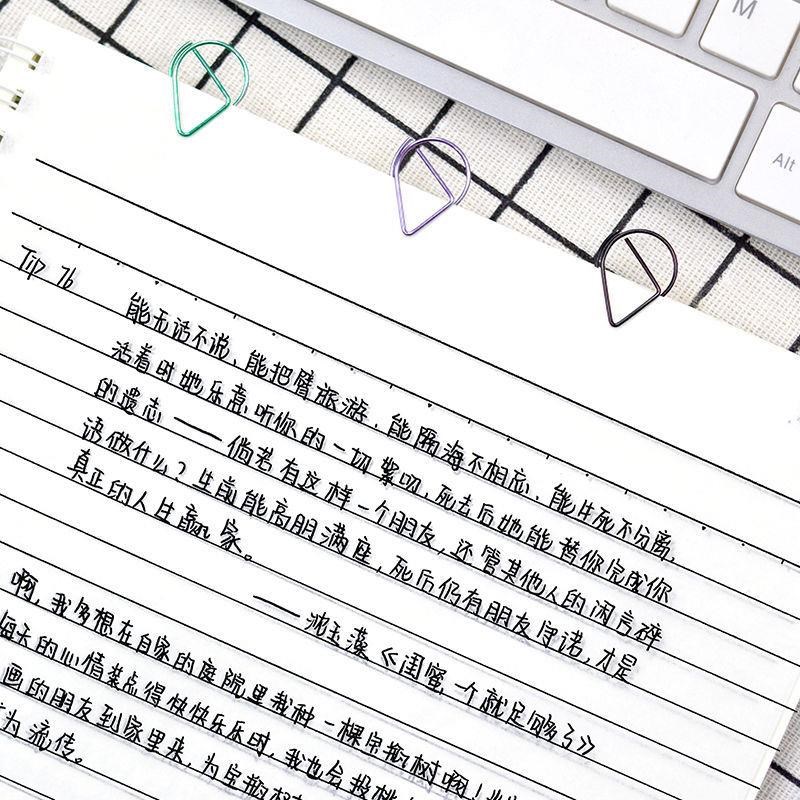 M
Alt
Tip 76
能无话不说，能把臂旅游，能隔海不相忘，能生死不分离，
活着时她乐意听你的一切絮叨，死去后她能替你完成你
的遗志——倘若有这样一个朋友，还管其他人的闲言碎
语做什么？生前能高朋满座，死后仍有朋友守诺，才是
真正的人生赢家。
——沈玉藻《闺蜜，一个就足够了》
啊，我多想在自家的庭院里栽种一棵宝瓶树啊！
每天的心情装点得快快乐乐时，我也会投桃
画的朋友到家里来，为宝瓶树
为流传。